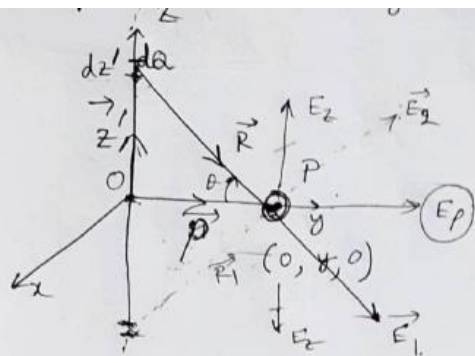 z
dz' dQ
z'
R
E_z
E_2
O
θ
P
y
E_ρ
ρ
R_1
(0, y, 0)
x
E_z
E_1